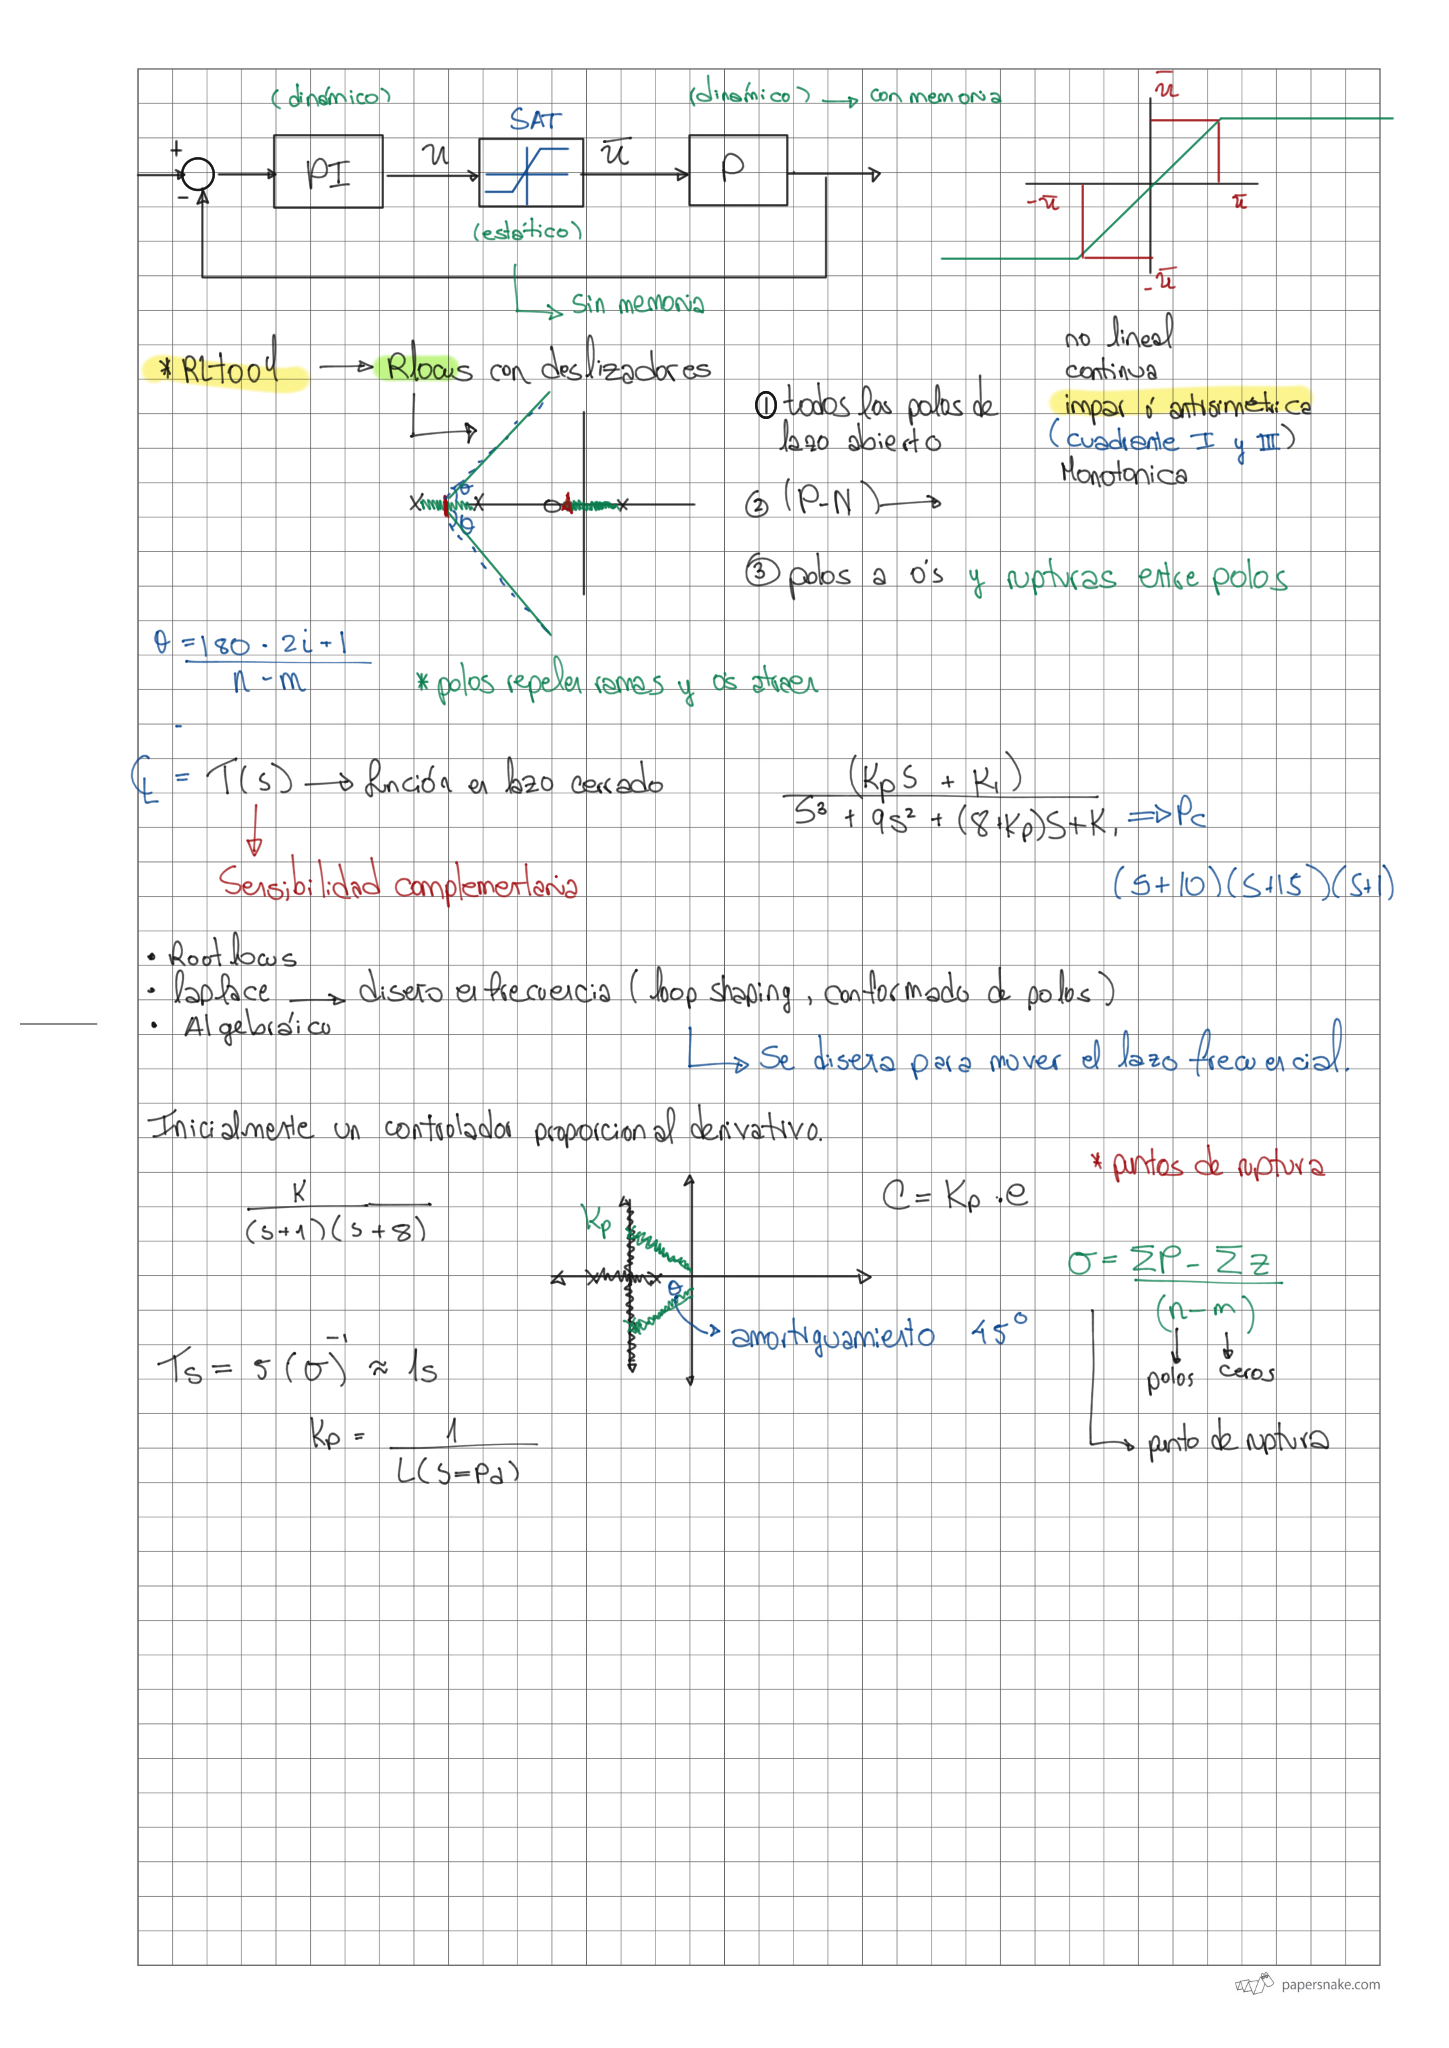 (dinámico)
(dinámico) → con memoria
SAT
+
-
PI
u
ū
P
(estático)
sin memoria
ū
-ū
ū
-ū
no lineal
continua
impar ó antisimétrica
(cuadrante I y III)
Monotonica
* Rltool → Rlocus con deslizadores
① todos los polos de
lazo abierto
② (P-N) →
③ polos a o's y rupturas entre polos
θ
θ
θ = 180 · 2i + 1
n - m
* polos repelen ramas y o's atraen
-
CL = T(s) → función en lazo cerrado
Sensibilidad complementaria
(Kp S + K1)
S³ + 9s² + (8+Kp)S + K1 => Pc
(S+10)(S+15)(S+1)
• Root locus
• laplace → diseño en frecuencia (loop shaping, conformado de polos)
• Algebráico
Se diseña para mover el lazo frecuencial.
Inicialmente un controlador proporcional derivativo.
K
(s+1)(s+8)
Kp
θ
amortiguamiento 45°
C = Kp · e
* puntos de ruptura
σ = ΣP - Σz
(n - m)
polos ceros
punto de ruptura
Ts = 5(σ)⁻¹ ≈ 1s
Kp = 1
L(s=Pd)
papersnake.com